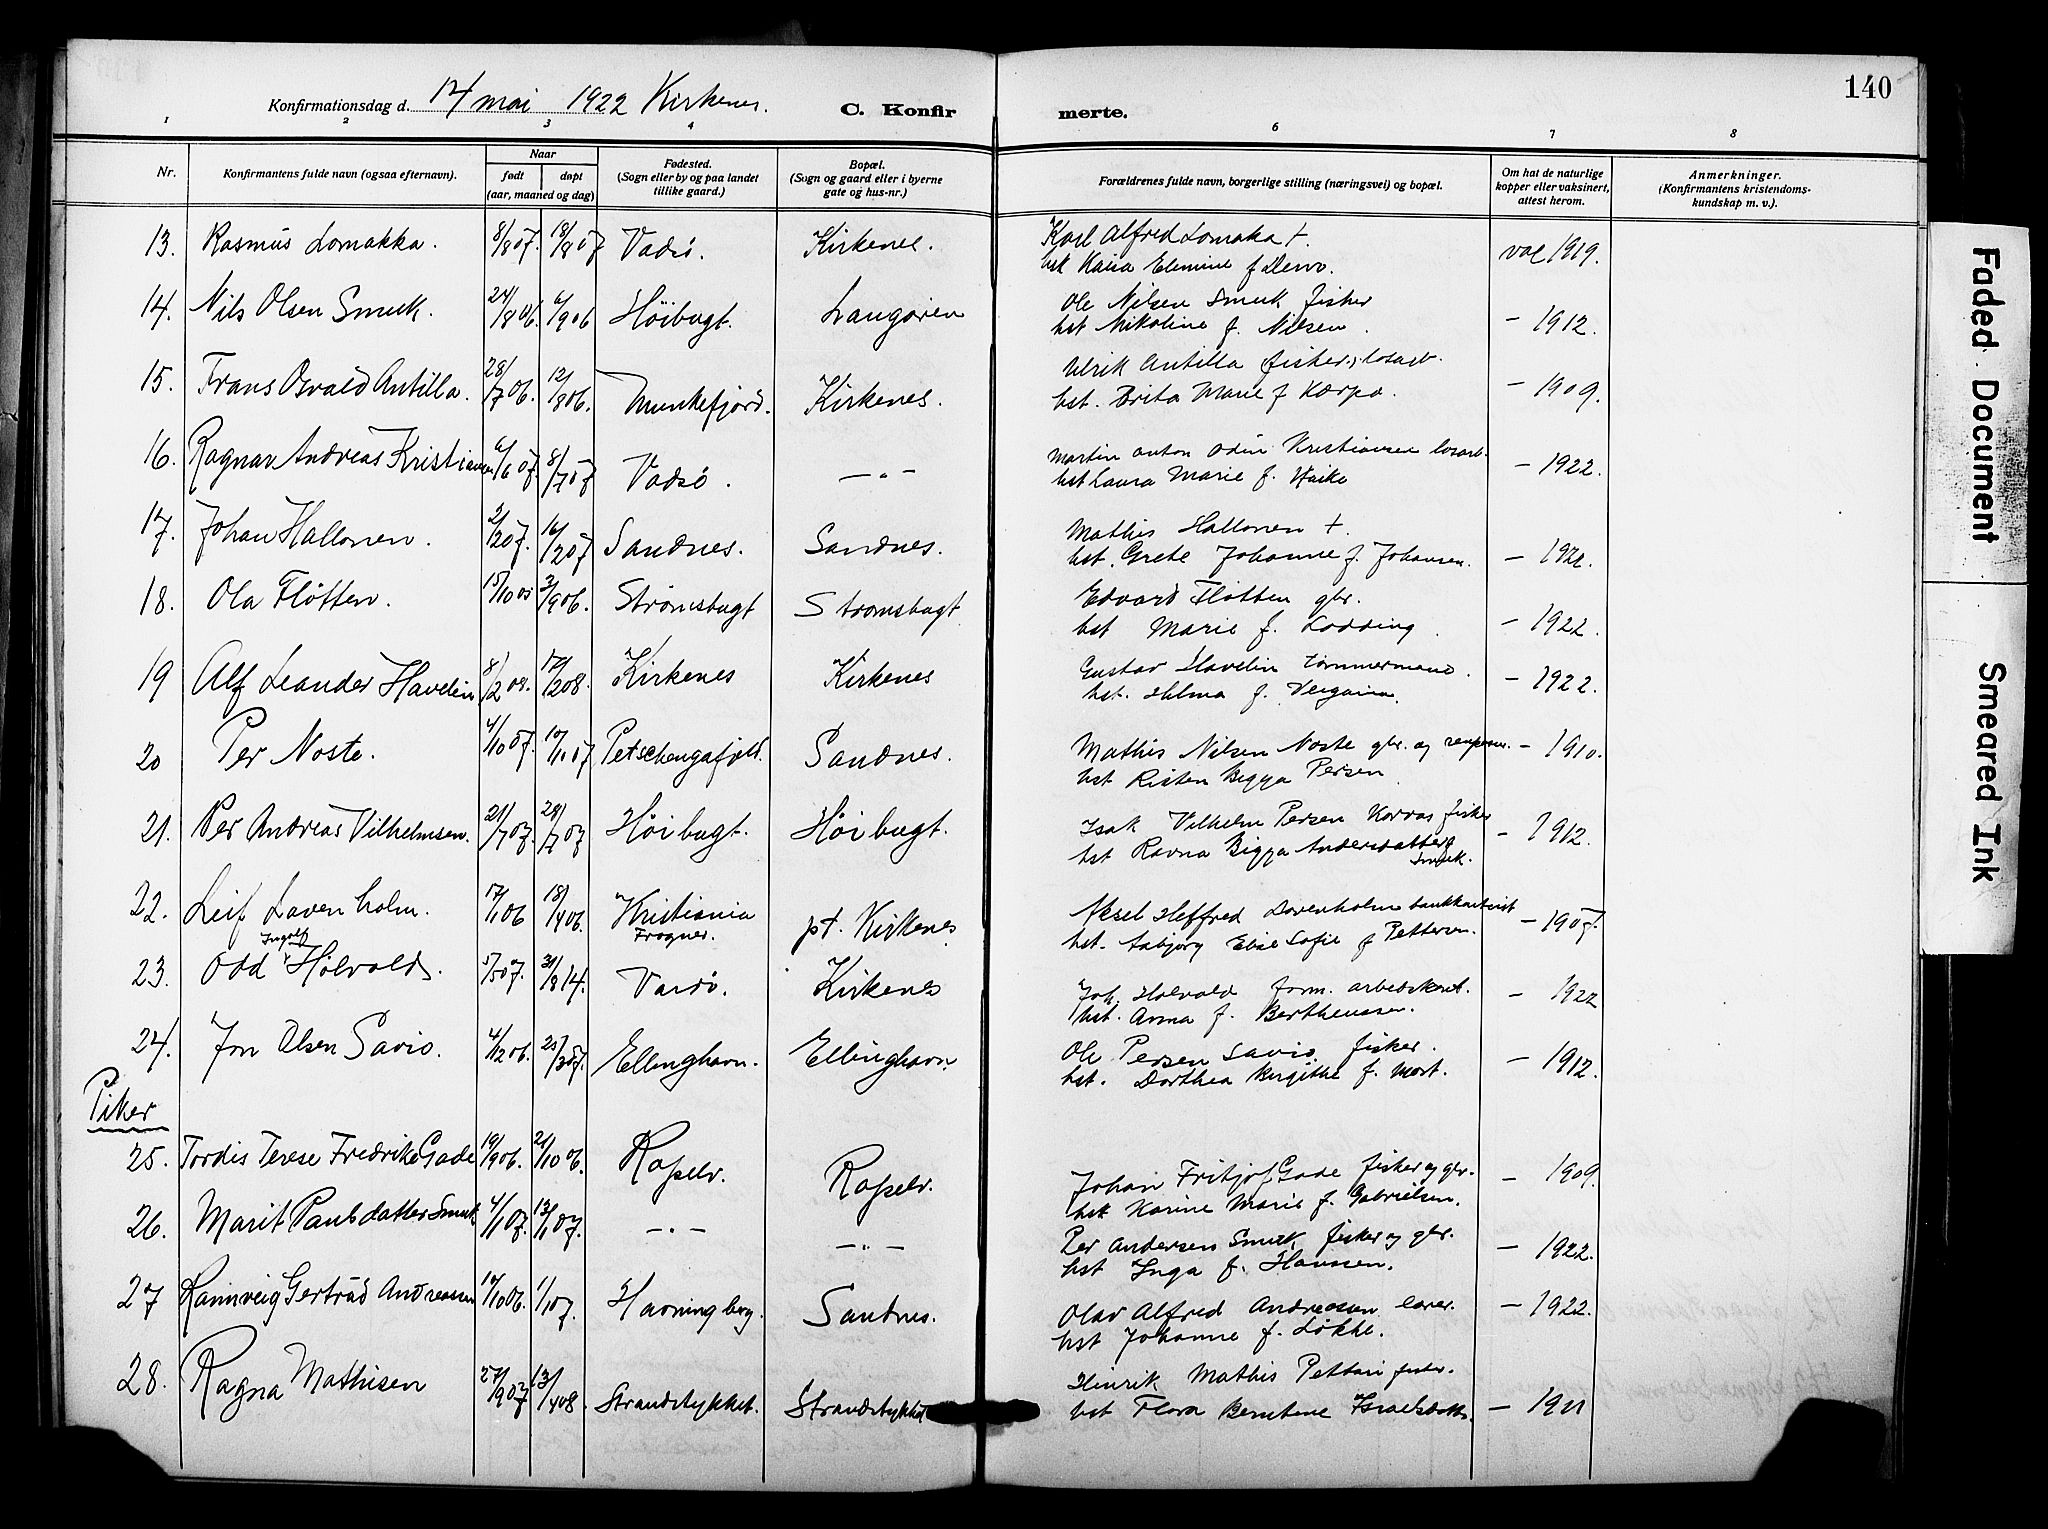 140
Konfirmationsdag d. 14 mai 1922 Kirkenes. C. Konfir merte.
1 2 3 4 6 7 8
Nr. Konfirmantens fulde navn (ogsaa efternavn). Naar født døpt (aar, maaned og dag) Fødested. (Sogn eller by og paa landet tillike gaard.) Bopæl. (Sogn og gaard eller i byerne gate og hus-nr.) Forældrenes fulde navn, borgerlige stilling (næringsvei) og bopæl. Om hat de naturlige kopper eller vaksinert, attest herom. Anmerkninger. (Konfirmantens kristendomskundskap m. v.).
13. Rasmus Lomakka. 8/8 07. 18/8 07 Vadsø. Kirkenes. Karl Alfred Lomaka +. vac 1919.
hst Kaisa Elemine f
14. Nils Olsen Smuk. 24/8 06. 6/9 06 Høibugt. Langøren Ole Nilsen Smuk fisker
hst Nikoline f. Nilsen. - 1912.
15. Frans Osvald Antilla. 28/7 06. 12/8 06. Munkefjord. Kirkenes. Ulrik Antilla fisker, løsarb.
hst. Brita Marie f Karpa. - 1909.
16. Ragnar Andreas Kristiansen 6/6 07. 8/7 07 Vadsø. -"- Martin Anton Odin Kristiansen løsarb.
hst Laura Marie f. Haiko - 1922.
17. Johan Hallonen. 2/2 07. 16/2 07 Sandnes. Sandnes. Mathis Hallonen +.
hst. Grete Johanne f. Johansen.
18. Ola Fløtten. 15/10 05 3/9 06. Strømsbugt Strømsbugt. Edvard Fløtten gbr.
hst Marie f. Lodding. - 1922.
19 Alf Leander Havelin 8/2 08. 17/2 08. Kirkenes Kirkenes Gustav Havelin tømmermand.
hst. Hilma f. - 1922.
20 Per Noste. 4/10 07. Petschengafjeld. Sandnes. Mathis Nilsen Noste gbr. og - 1910.
hst Risten Bigga Persen
21. Per Andreas Vilhelmsen. 21/7 07. 28/7 07 Høibugt. Høibugt. Isak Vilhelm Persen Korras fisker
hst Ravna Bigga Andersdatter Smuk. - 1912.
22. Leif Lavenholm. 17/1 06 18/4 06. Kristiania Frogner. pt. Kirkenes Aksel Heffred Lovenholm
hst. Asbjørg Elise Sofie f Pettersen. - 1907.
23. Odd Ingolf Hølvold. 5/5 07. 31/8 14. Vardø. Kirkenes Joh. Hølvold form. arbeidskont.
hst. Anna f. Berthenssen. - 1922
24. Jon Olsen Savio. 4/12 06. 25/3 07. Ellinghavn. Ellinghavn. Ole Persen Savio fisker.
hst. Dorthea Birgithe f. Mort. - 1912.
Piker
25. Tordis Terese Fredrikke Gade 19/9 06. 21/10 06. Ropelv. Ropelv. Johan Fritjof Gade fisker og gbr. - 1909
hst Karine Marie f. Gabrielsen.
26. Marit Paulsdatter Smuk 4/1 07. 13/1 07. -"- -"- Per Andersen Smuk fisker og gbr.
hst Inga f. Hanssen. - 1922.
27 Rannveig Gertrud Andreassen 14/10 06. 1/1 07. Havningberg. Sandnes. Olav Alfred Andreassen lærer. - 1922.
hst Johanne f. Løkke.
28. Ragna Mathisen 27/9 07 13/4 08. Strandstykket. Strandstykket Hinrik Mathis Pettari fisker.
hst Flora Berntine Israelsdatter. - 1921
Faded Document
Smeared Ink